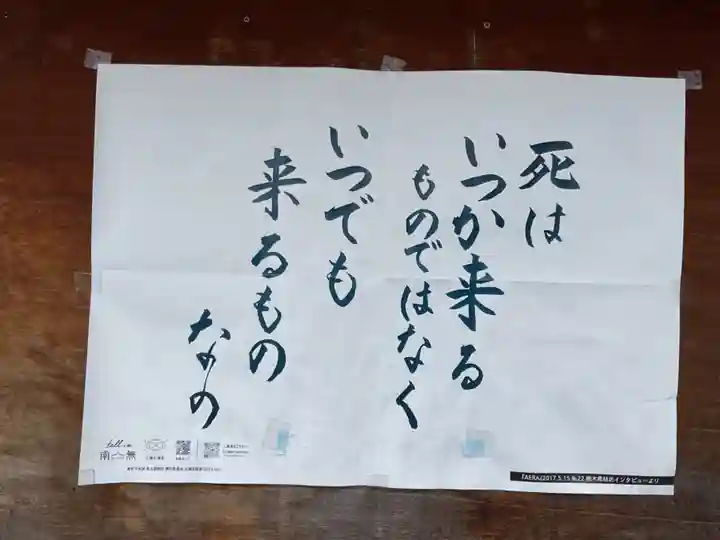 死は
いつか来る
ものではなく
いつでも
来るもの
なの
『AERA』2017.5.15 No.22 樹木希林氏インタビューより